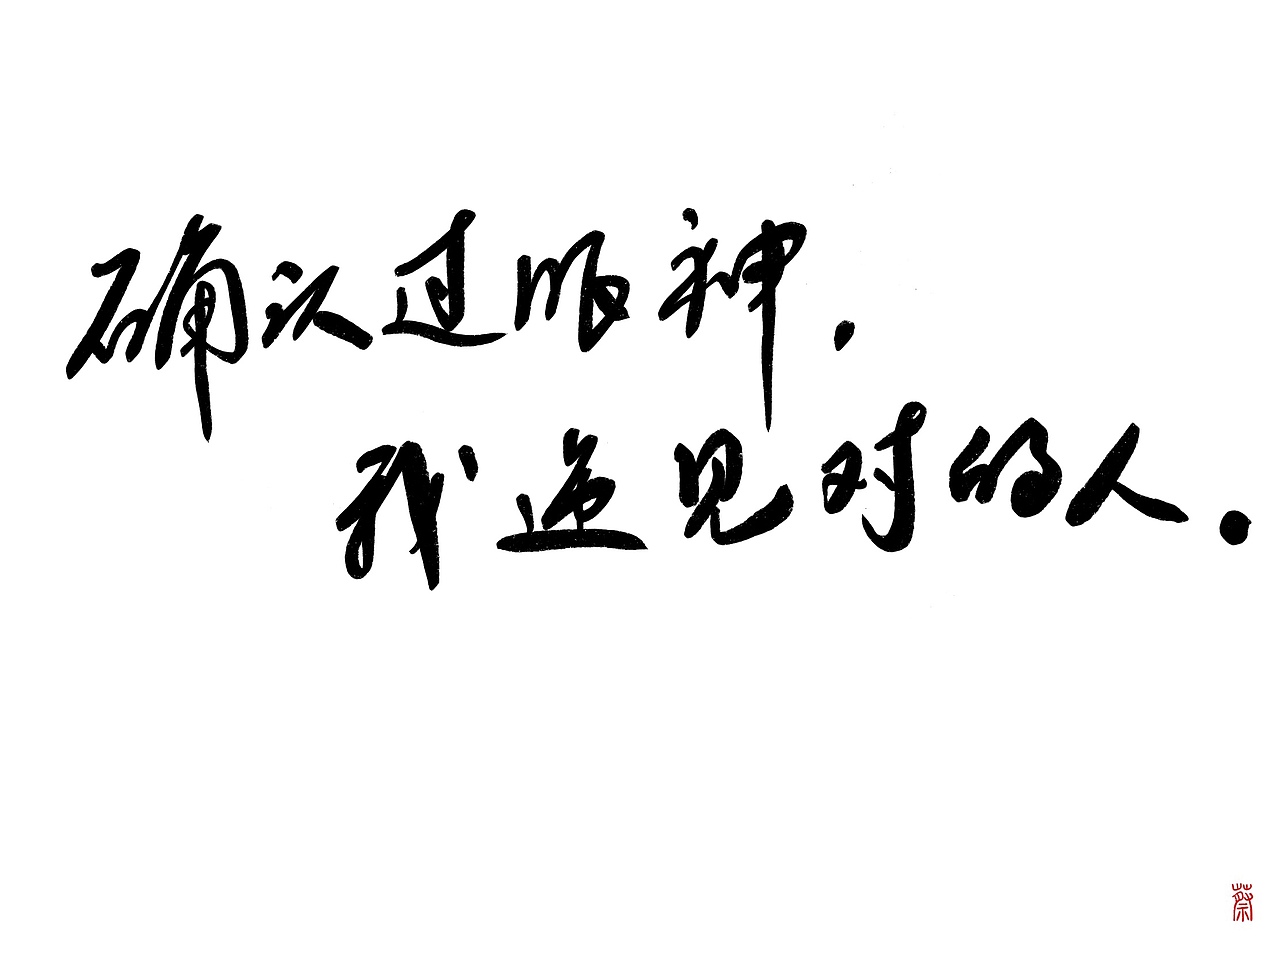 确认过眼神.
我遇见对的人.
蔡